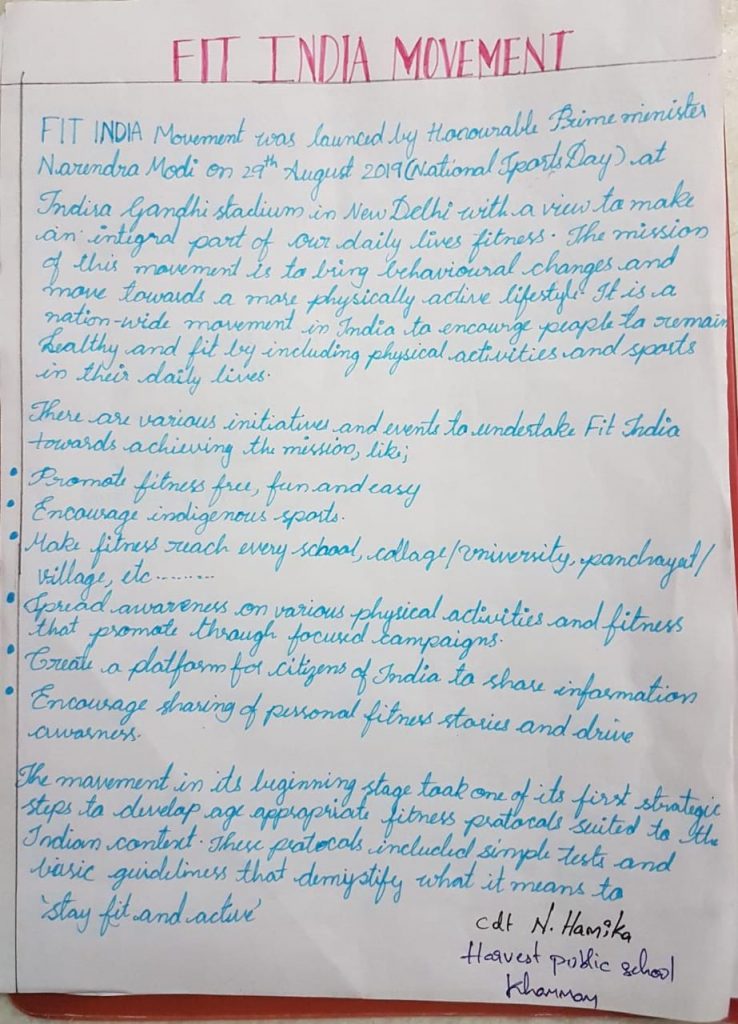 FIT INDIA MOVEMENT
FIT INDIA Movement was launced by Honourable Prime menister
Narendra Modi on 29th August 2019(National Sports Day) at
Indira Gandhi stadium in New Delhi with a view to make
an integral part of our daily lives fitness. The mission
of this movement is to bring behavioural changes and
move towards a more physically active lifestyle. It is a
nation-wide movement in India to encourge people to remain
healthy and fit by including physical activities and sports
in their daily lives.
There are various initiatives and events to undertake Fit India
towards achieving the mission, like;
• Promote fitness free, fun and easy
• Encourage indigenous sports.
• Make fitness reach every school, collage/University, panchayat/
village, etc.........
• Spread awareness on various physical activities and fitness
that promote through focused campaigns.
• Create a platform for citizens of India to share information
• Encourage sharing of personal fitness stories and drive
awarness.
The movement in its beginning stage took one of its first strategic
steps to develop age appropriate fitness protocals suited to the
Indian context. These protocals included simple tests and
basic guideliness that demystify what it means to
'stay fit and active'
cdt N. Hamika
Harvest public school
Khammam